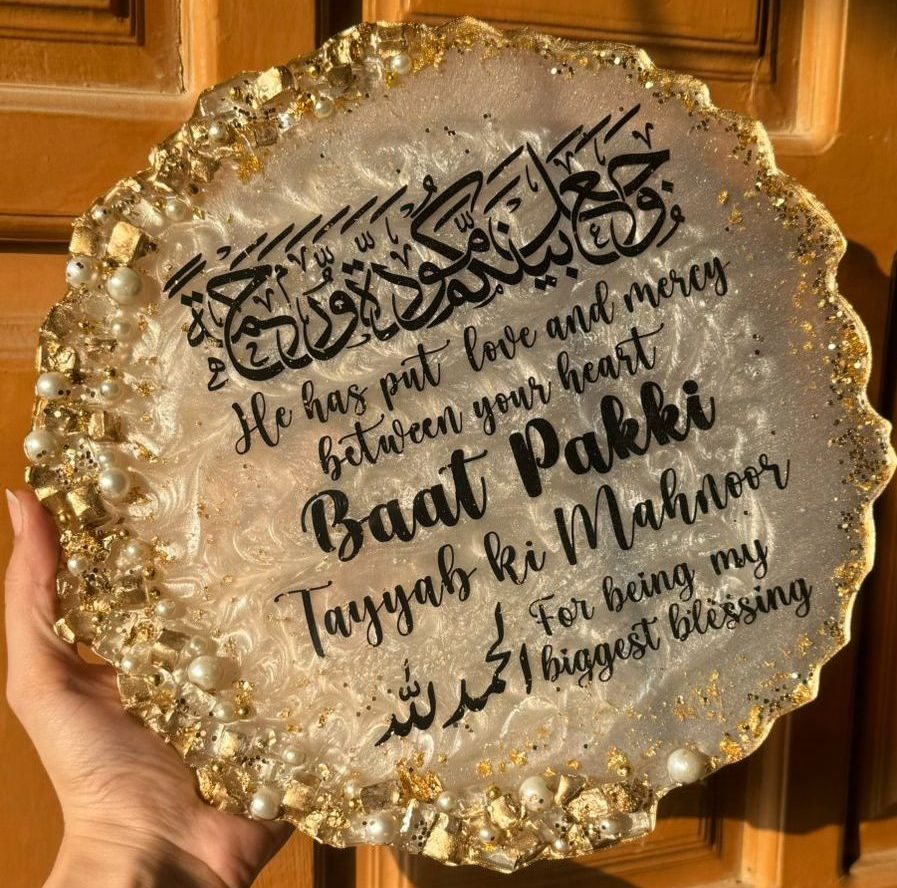 وَجَعَلَ بَيْنَكُم مَّوَدَّةً وَرَحْمَةً
He has put love and mercy
between your heart
Baat Pakki
Tayyab ki Mahnoor
For being my
biggest blessing
الحمد لله